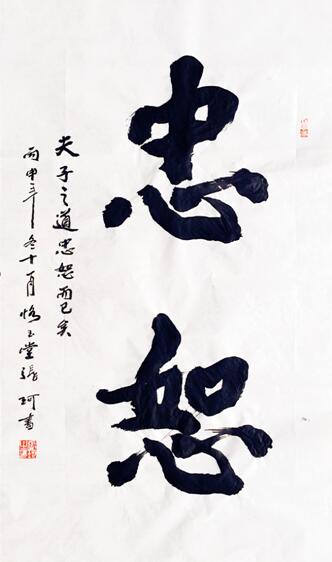 忠恕
夫子之道忠恕而已矣
丙申年冬十一月悟玉堂張珂書